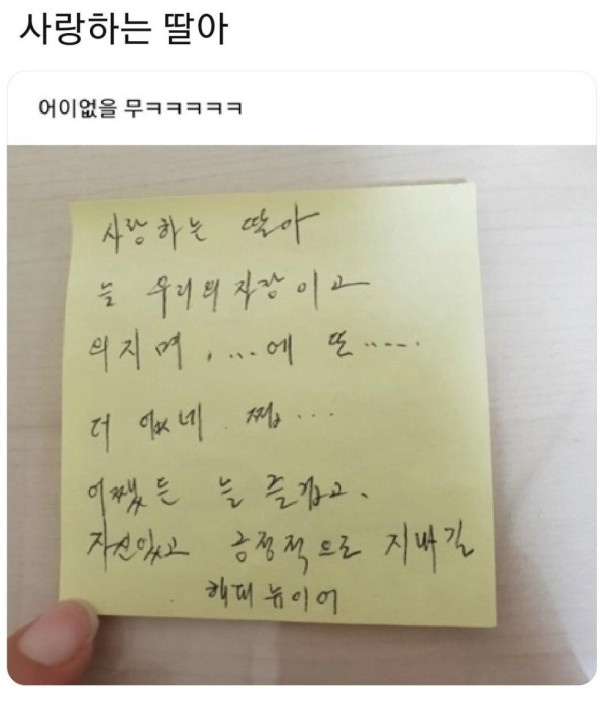 사랑하는 딸아
어이없을 무ㅋㅋㅋㅋㅋ
사랑하는 딸아
늘 우리의 직장이고
의지며 , ....에 또 .....
더 없네 . 쩝...
어쨌든 늘 즐겁고.
자신있고 긍정적으로 지내길
해피 뉴이어